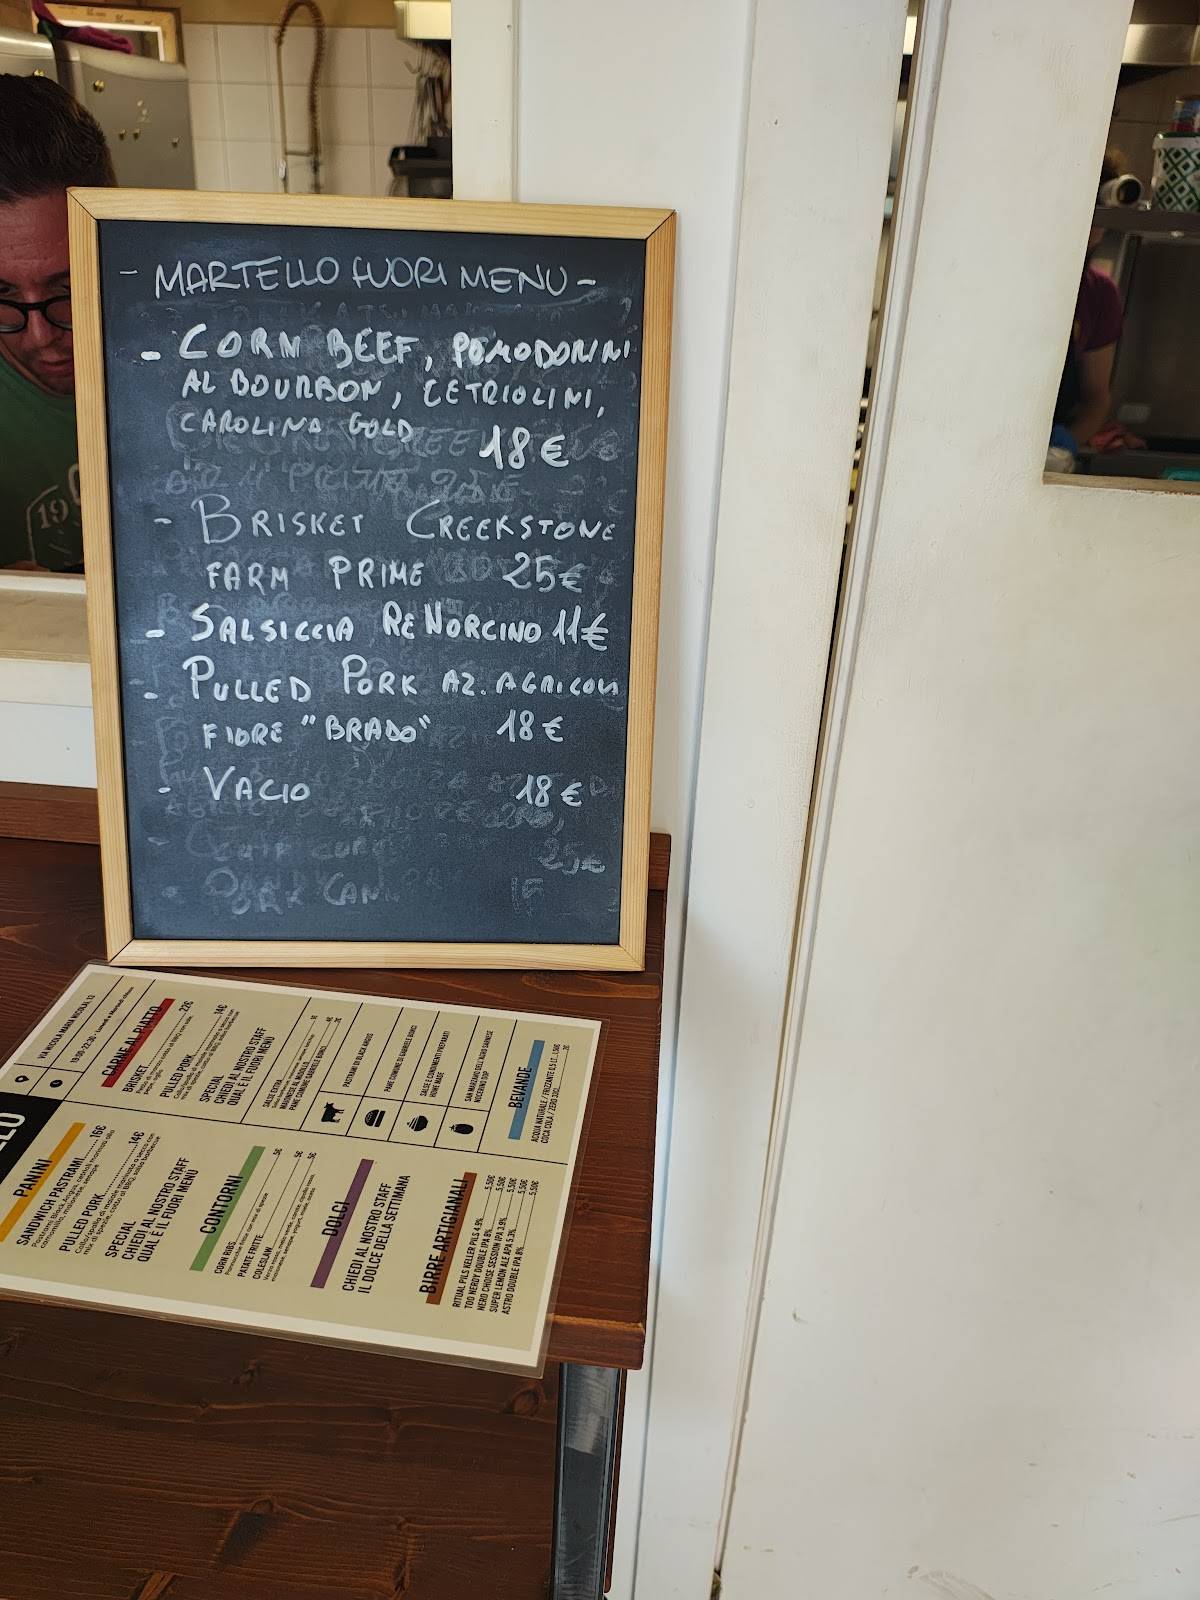 - MARTELLO FUORI MENU -
- CORN BEEF, POMODORINI
AL BOURBON, CETRIOLINI,
CAROLINA GOLD 18€
- BRISKET CREEKSTONE
FARM PRIME 25€
- SALSICCIA RE NORCINO 11€
- PULLED PORK AZ. AGRICOLA
FIORE "BRADO" 18€
- VACIO 18€
25€
PORK
19
VIA NICOLA MARIA NICOLAI, 13
CARNE AL PIATTO
BRISKET 22€
PULLED PORK 14€
SPECIAL
CHIEDI AL NOSTRO STAFF
QUAL È IL FUORI MENU
SALSE EXTRA 1€
PANE COMUNE GABRIELE BONCI 2€
PASTRAMI DI BLACK ANGUS
PANE COMUNE DI GABRIELE BONCI
SALSE E CONDIMENTI PREPARATI
HOME MADE
SAN MARZANO DELL'AGRO SARNESE
NOCERINO DOP
BEVANDE
ACQUA NATURALE / FRIZZANTE 0,5 LT. 1,50€
COCA COLA / ZERO 33CL. 2€
PANINI
SANDWICH PASTRAMI 16€
PULLED PORK 14€
SPECIAL
CHIEDI AL NOSTRO STAFF
QUAL È IL FUORI MENU
CONTORNI
CORN RIBS 5€
PATATE FRITTE 5€
COLESLAW 5€
DOLCI
CHIEDI AL NOSTRO STAFF
IL DOLCE DELLA SETTIMANA
BIRRE ARTIGIANALI
RITUAL PILS KELLER PILS 4.9% 5,50€
TOO NERDY DOUBLE IPA 8% 5,50€
NERD CHOISE SESSION IPA 3.9% 5,50€
SUPER LEMON ALE APA 5.3% 5,50€
ASTRO DOUBLE IPA 8% 5,50€